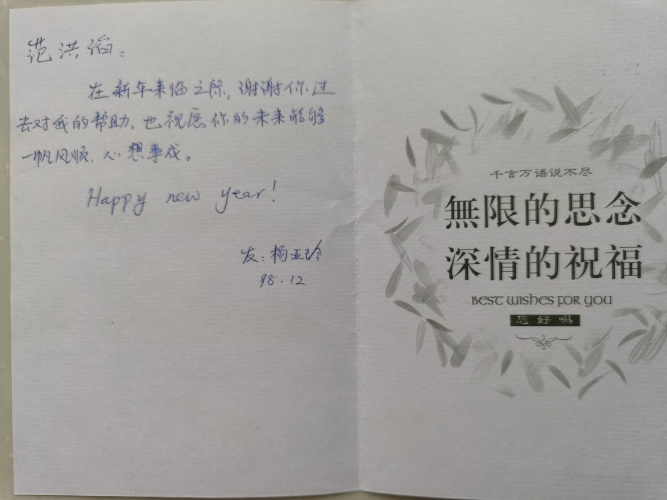 范洪滔：
在新年来临之际，谢谢你过
去对我的帮助，也祝愿你的未来能够
一帆风顺、心想事成。
Happy new year!
友：杨亚玲
98.12
千言万语说不尽
無限的思念
深情的祝福
BEST WISHES FOR YOU
您好吗